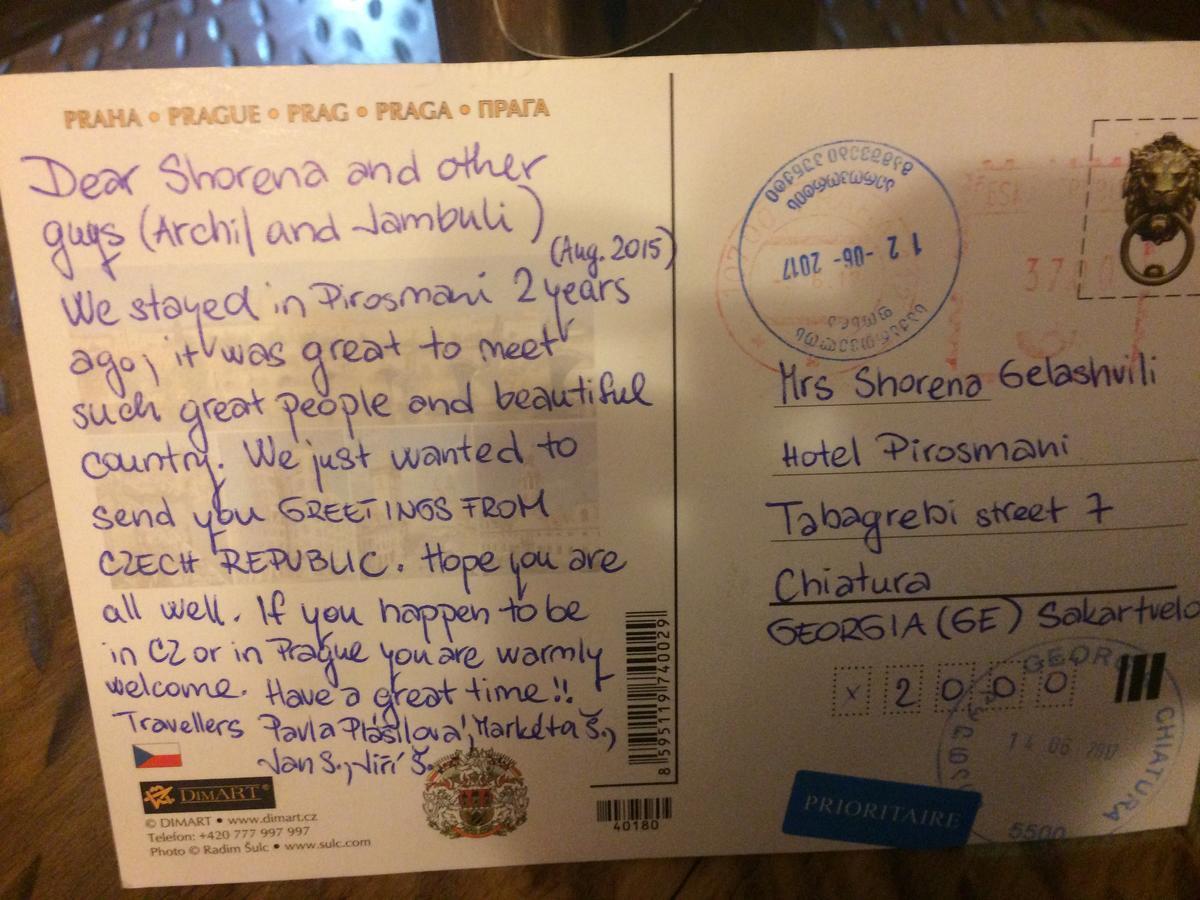 PRAHA • PRAGUE • PRAG • PRAGA • ПРАГА
Dear Shorena and other
guys (Archil and Jambuli)
(Aug. 2015)
We stayed in Pirosmani 2 years
ago; it was great to meet
such great people and beautiful
country. We just wanted to
send you GREETINGS FROM
CZECH REPUBLIC. Hope you are
all well. If you happen to be
in CZ or in Prague you are warmly
welcome. Have a great time!!
Travellers Pavla Plášilová, Markéta Š.,
Jan S., Jiří Š.
DIMART
© DIMART • www.dimart.cz
Telefon: +420 777 997 997
Photo © Radim Šulc • www.sulc.com
8 595119 740029
40180
12 -06- 2017
Mrs Shorena Gelashvili
Hotel Pirosmani
Tabagrebi street 7
Chiatura
GEORGIA (GE) Sakartvelo
x 2 0 0 0
GEOR
14 06 2017
CHIATURA
5500
PRIORITAIRE